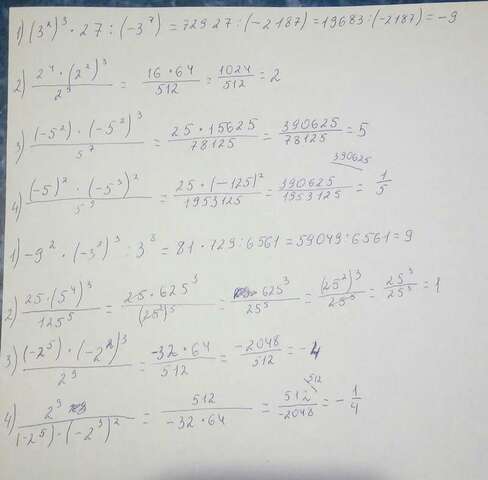 1) (3²)³ · 27 : (-3⁷) = 729 27 : (-2187) = 19683 : (-2187) = -9
2) 2⁴ · (2²)³ / 2⁹ = 16 · 64 / 512 = 1024 / 512 = 2
3) (-5²) · (-5²)³ / 5⁷ = 25 · 15625 / 78125 = 390625 / 78125 = 5
4) (-5)² · (-5³)² / 5⁹ = 25 · (-125)² / 1953125 = 390625 / 1953125 = 1/5
390625
1) -9² · (-3²)³ : 3⁸ = 81 · 729 : 6561 = 59049 : 6561 = 9
2) 25 · (5⁴)³ / 125⁵ = 25 · 625³ / (25²)⁵ = 625³ / 25⁵ = (25²)³ / 25⁵ = 25³ / 25³ = 1
3) (-2⁵) · (-2²)³ / 2⁹ = -32 · 64 / 512 = -2048 / 512 = -4
4) 2⁹ / (-2⁵) · (-2³)² = 512 / -32 · 64 = 512 / -2048 = -1/4
512